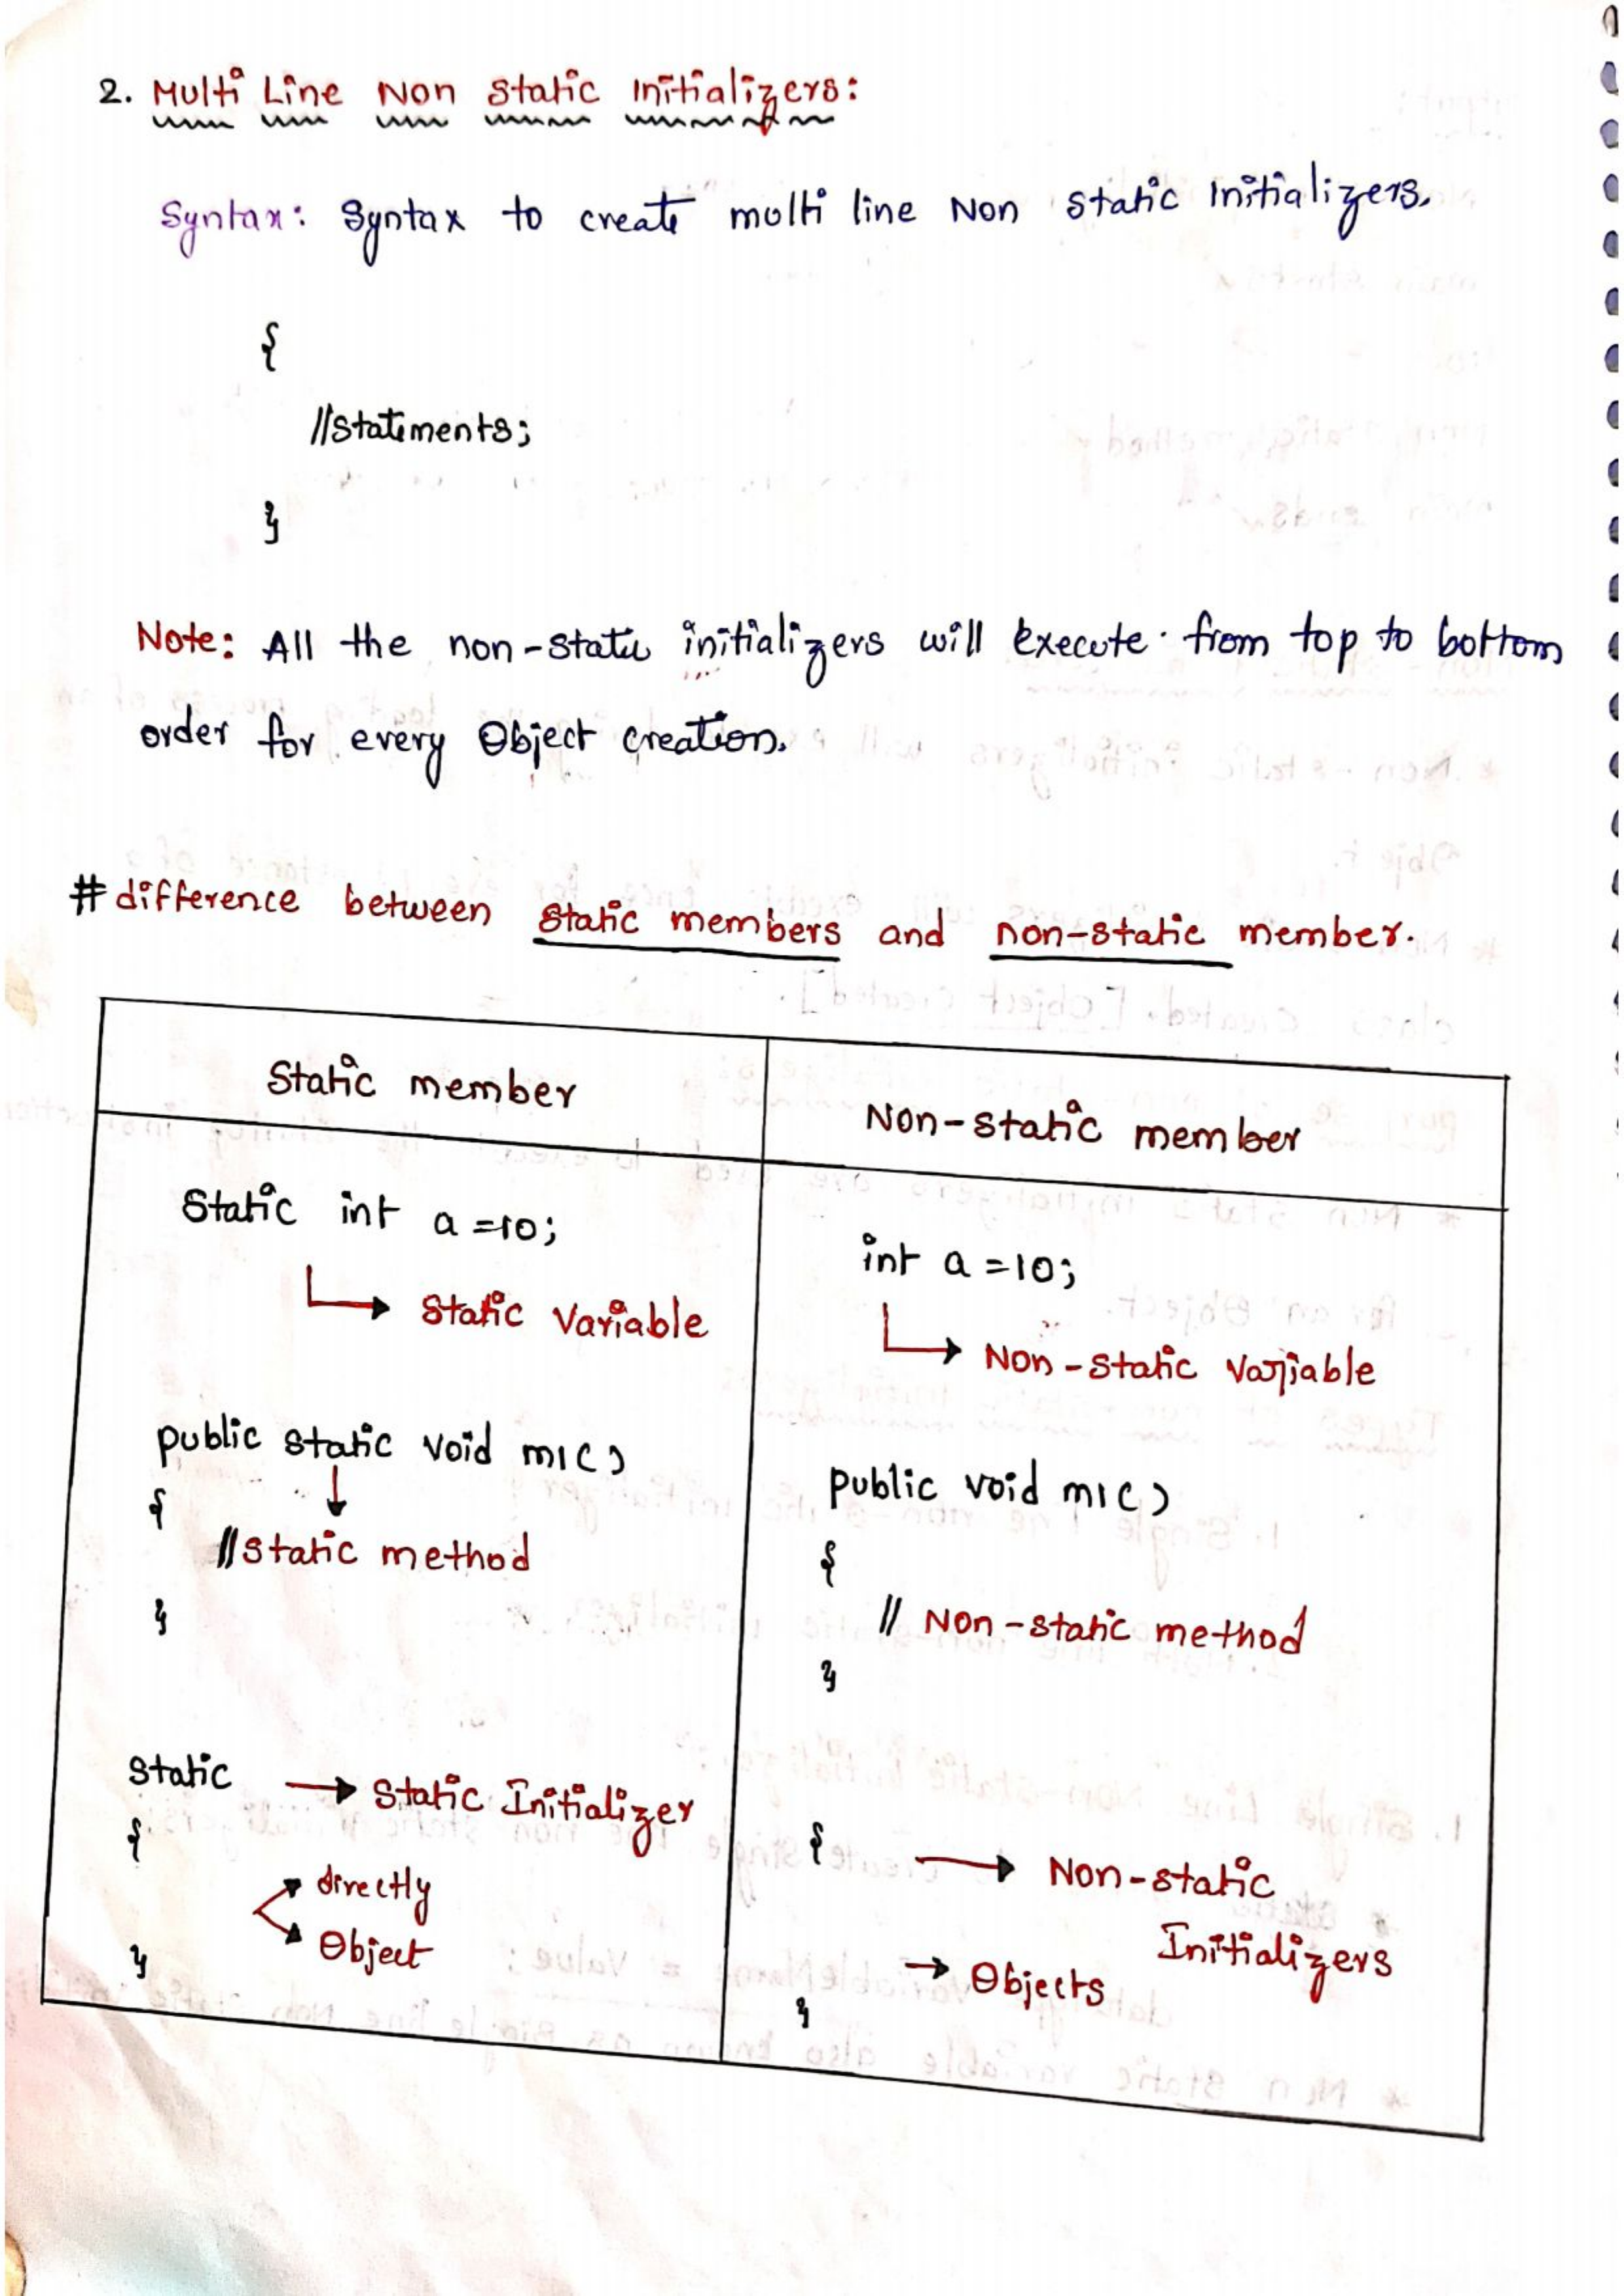 2. Multi Line Non Static Initializers:
Syntax: Syntax to create multi line Non static Initializers.
{
//Statements;
}
Note: All the non-static initializers will execute from top to bottom
order for every Object creation.
# difference between static members and non-static member.
Static member
Non-static member
Static int a =10;
Static Variable
public static void m1()
{
//static method
}
Static → Static Initializer
{
directly
Object
}
int a =10;
Non-static Variable
public void m1()
{
// Non-static method
}
{ → Non-static
Initializers
→ Objects
}